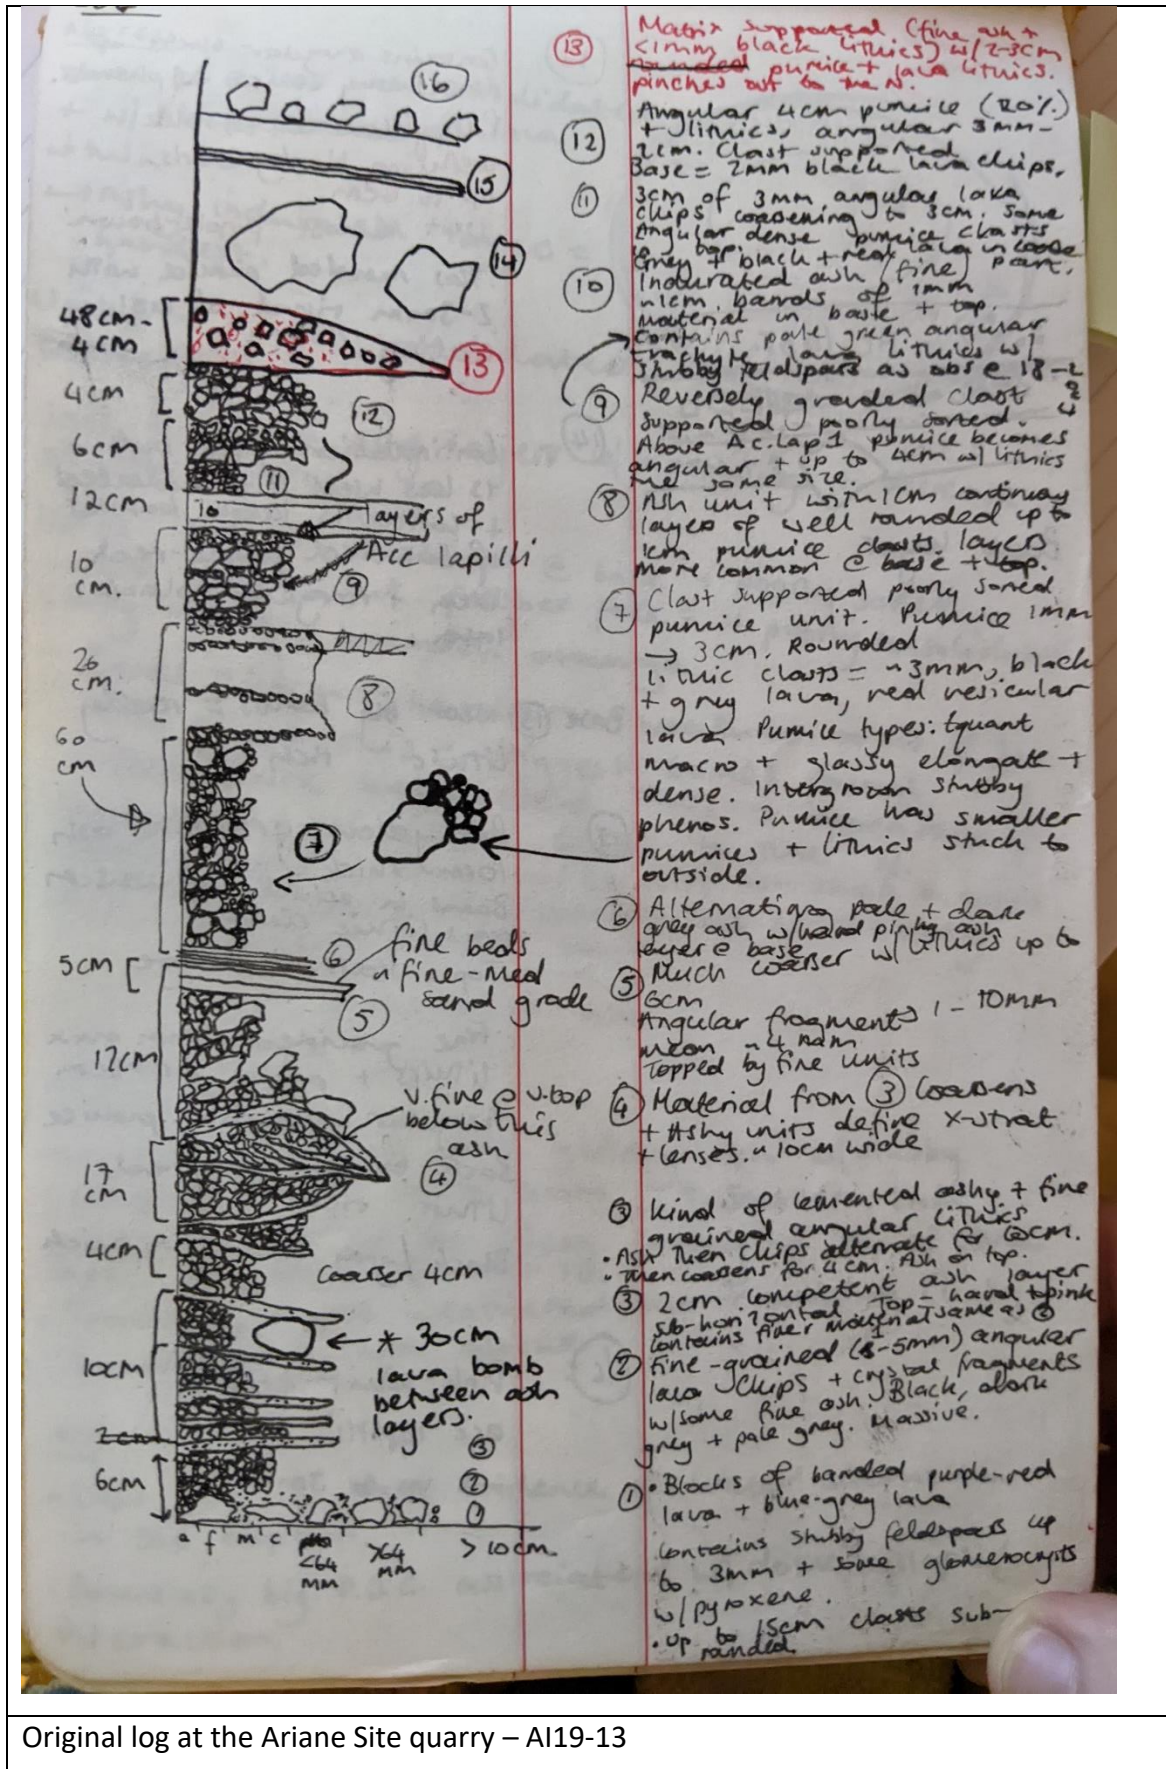 16
15
14
48cm-
4cm
13
4cm
12
6cm
11
12cm
10
layers of
Acc lapilli
10
cm.
9
26
cm.
8
60
cm
7
6
fine beds
~ fine-med
sand grade
5cm
5
12cm
v.fine @ v.top
below this
ash
17
cm
4
4cm
Coarser 4cm
* 30cm
lava bomb
between ash
layers.
10cm
2cm
3
6cm
2
1
a f m c <64 mm >64 mm >10cm
13 Matrix supported (fine ash +
<1mm black lithics) w/ 2-3cm
rounded pumice + lava lithics.
pinches out to the N.
12 Angular 4cm pumice (20%)
+ lithics, angular 3mm-
2cm. Clast supported
Base = 2mm black lava chips.
11 3cm of 3mm angular lava
chips coarsening to 3cm. Some
Angular dense pumice clasts
@ top.
Grey + black + red lava in coarse part.
10 Indurated ash (fine)
~1cm bands of 1mm
material in base + top.
Contains pale green angular
trachyte lava lithics w/
stubby feldspars as obs @ 18-2
9 Reversely graded clast
supported poorly sorted.
Above Ac.lap 1 pumice becomes
angular + up to 4cm w/ lithics
the same size.
8 Ash unit with 1cm continuous
layers of well rounded up to
1cm pumice clasts. layers
more common @ base + top.
7 Clast supported poorly sorted
pumice unit. Pumice 1mm
→ 3cm. Rounded
Lithic clasts = ~3mm, black
+ grey lava, red vesicular
lava. Pumice types: Equant
macro + glassy elongate +
dense. Intergrown stubby
phenos. Pumice has smaller
pumices + lithics stuck to
outside.
6 Alternating pale + dark
grey ash w/ hard pink ash
layer @ base
5 Much coarser w/ lithics up to
6cm
Angular fragments 1-10mm
mean ~4mm
Topped by fine units
4 Material from 3 Coarsens
+ Ashy units define x-strat
+ lenses. ~10cm wide
3 Kind of cemented ashy + fine
grained angular lithics
• Ash then chips alternate for 6cm.
• Then coarsens for 4cm. Ash on top.
3 2cm competent ash layer
sub-horizontal. Top = hard + pink
contains finer material same as 2
2 Fine-grained (1-5mm) angular
lava chips + crystal fragments
w/ some fine ash. Black, dark
grey + pale grey. Massive.
1 • Blocks of banded purple-red
lava + blue-grey lava
contains stubby feldspars up
to 3mm + some glomerocrysts
w/ pyroxene.
• up to 15cm clasts sub-
rounded
Original log at the Ariane Site quarry – AI19-13